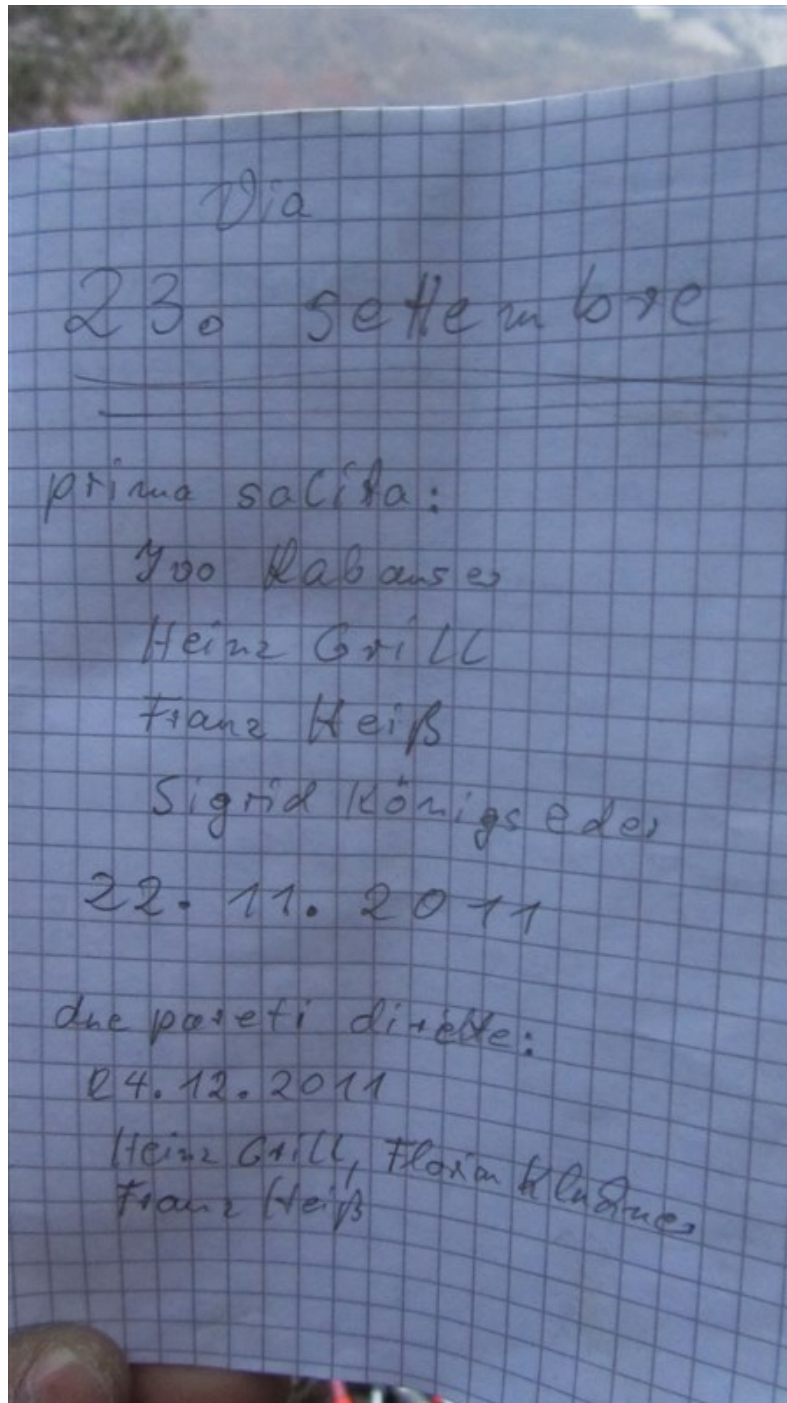 Via
23. settembre
prima salita:
Ivo Rabanser
Heinz Grill
Franz Heiß
Sigrid Königseder
22. 11. 2011
due pareti dirette:
24.12.2011
Heinz Grill, Florian Kluckner
Franz Heiß